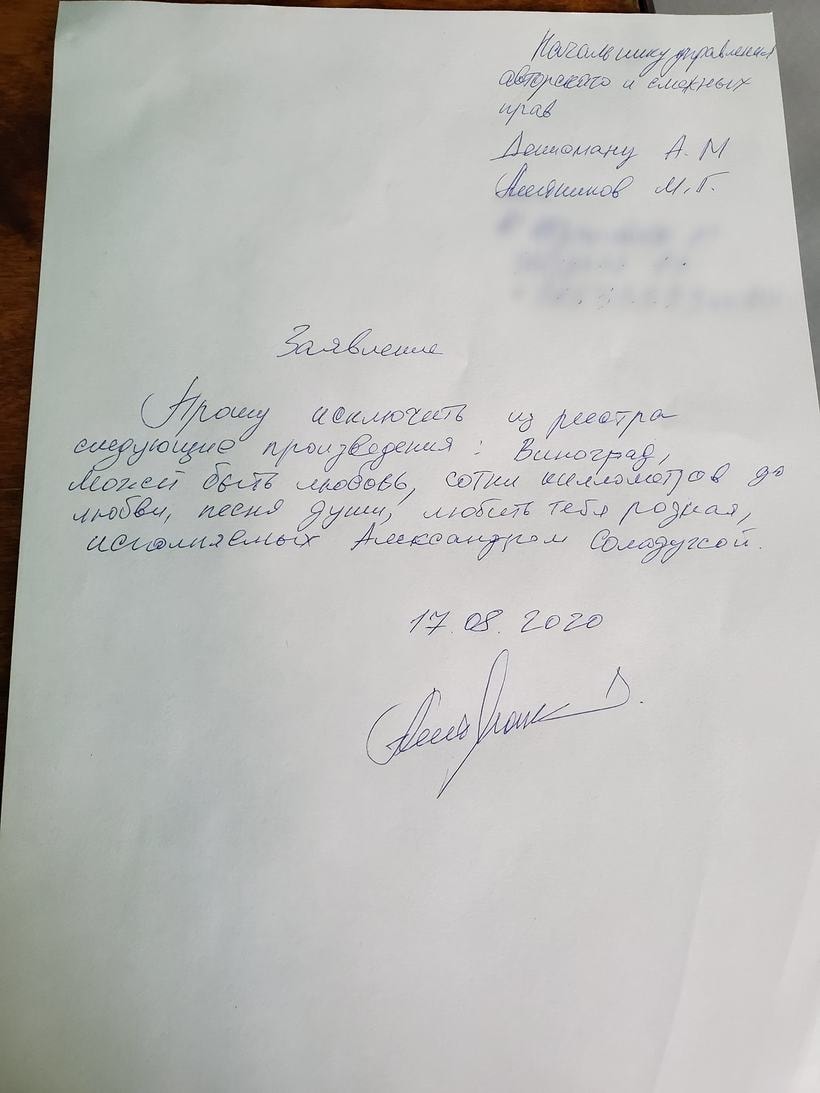 Начальнику управления
авторского и смежных
прав
А. М
М. Г.
Заявление
Прошу исключить из реестра
следующие произведения: Виноград,
Может быть любовь, сотни километров до
любви, песня души, любить тебя родная,
исполняемых Александром Солодухой.
17.08.2020